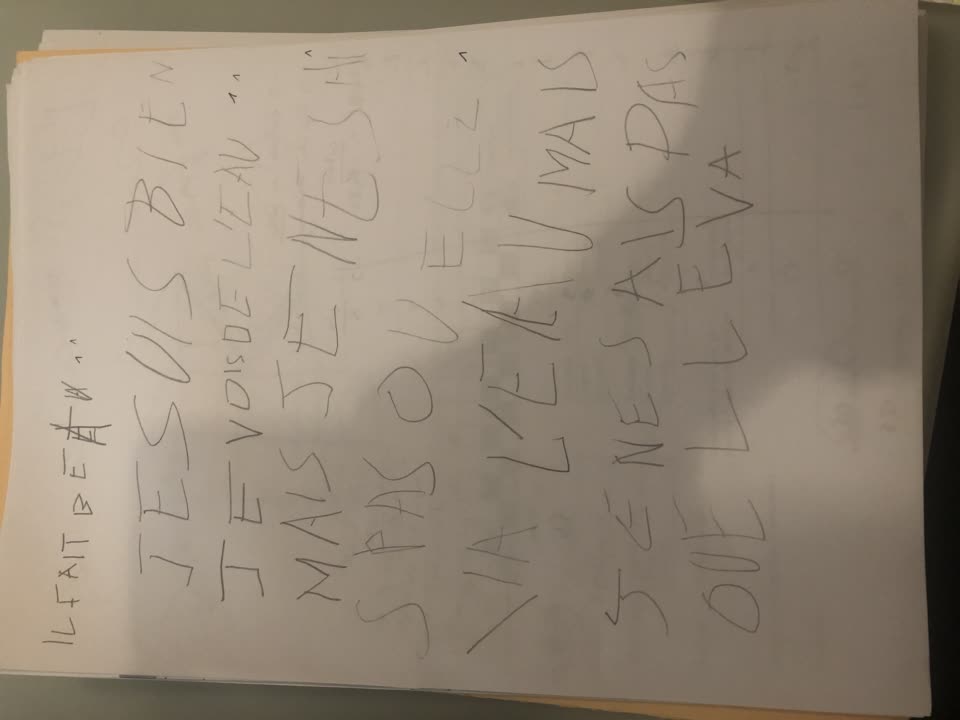 IL FAIT BEAU..
JE SUIS BIEN
JE VOIS DE L'EAU ..
MAIS JE NE SAI
S PAS OU ELLE
VA L'EAU MAIS
JE NE SAIS PAS
OUE LLE VA